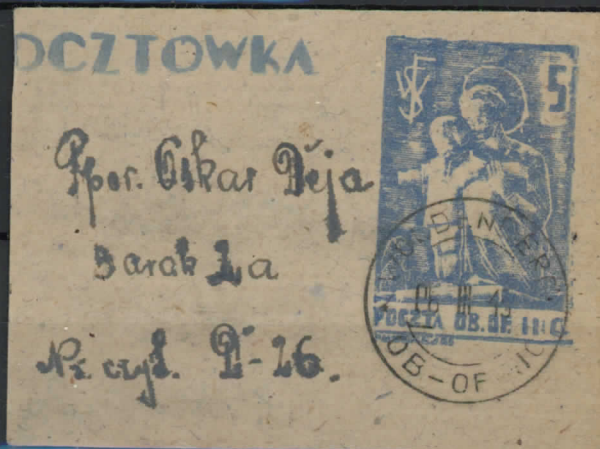 OCZTOWKA
5
Ppor. Oskar Děja
Barak 2a
Nr czyt. D-26.
POCZTA OB. OF. II C
OB-OF